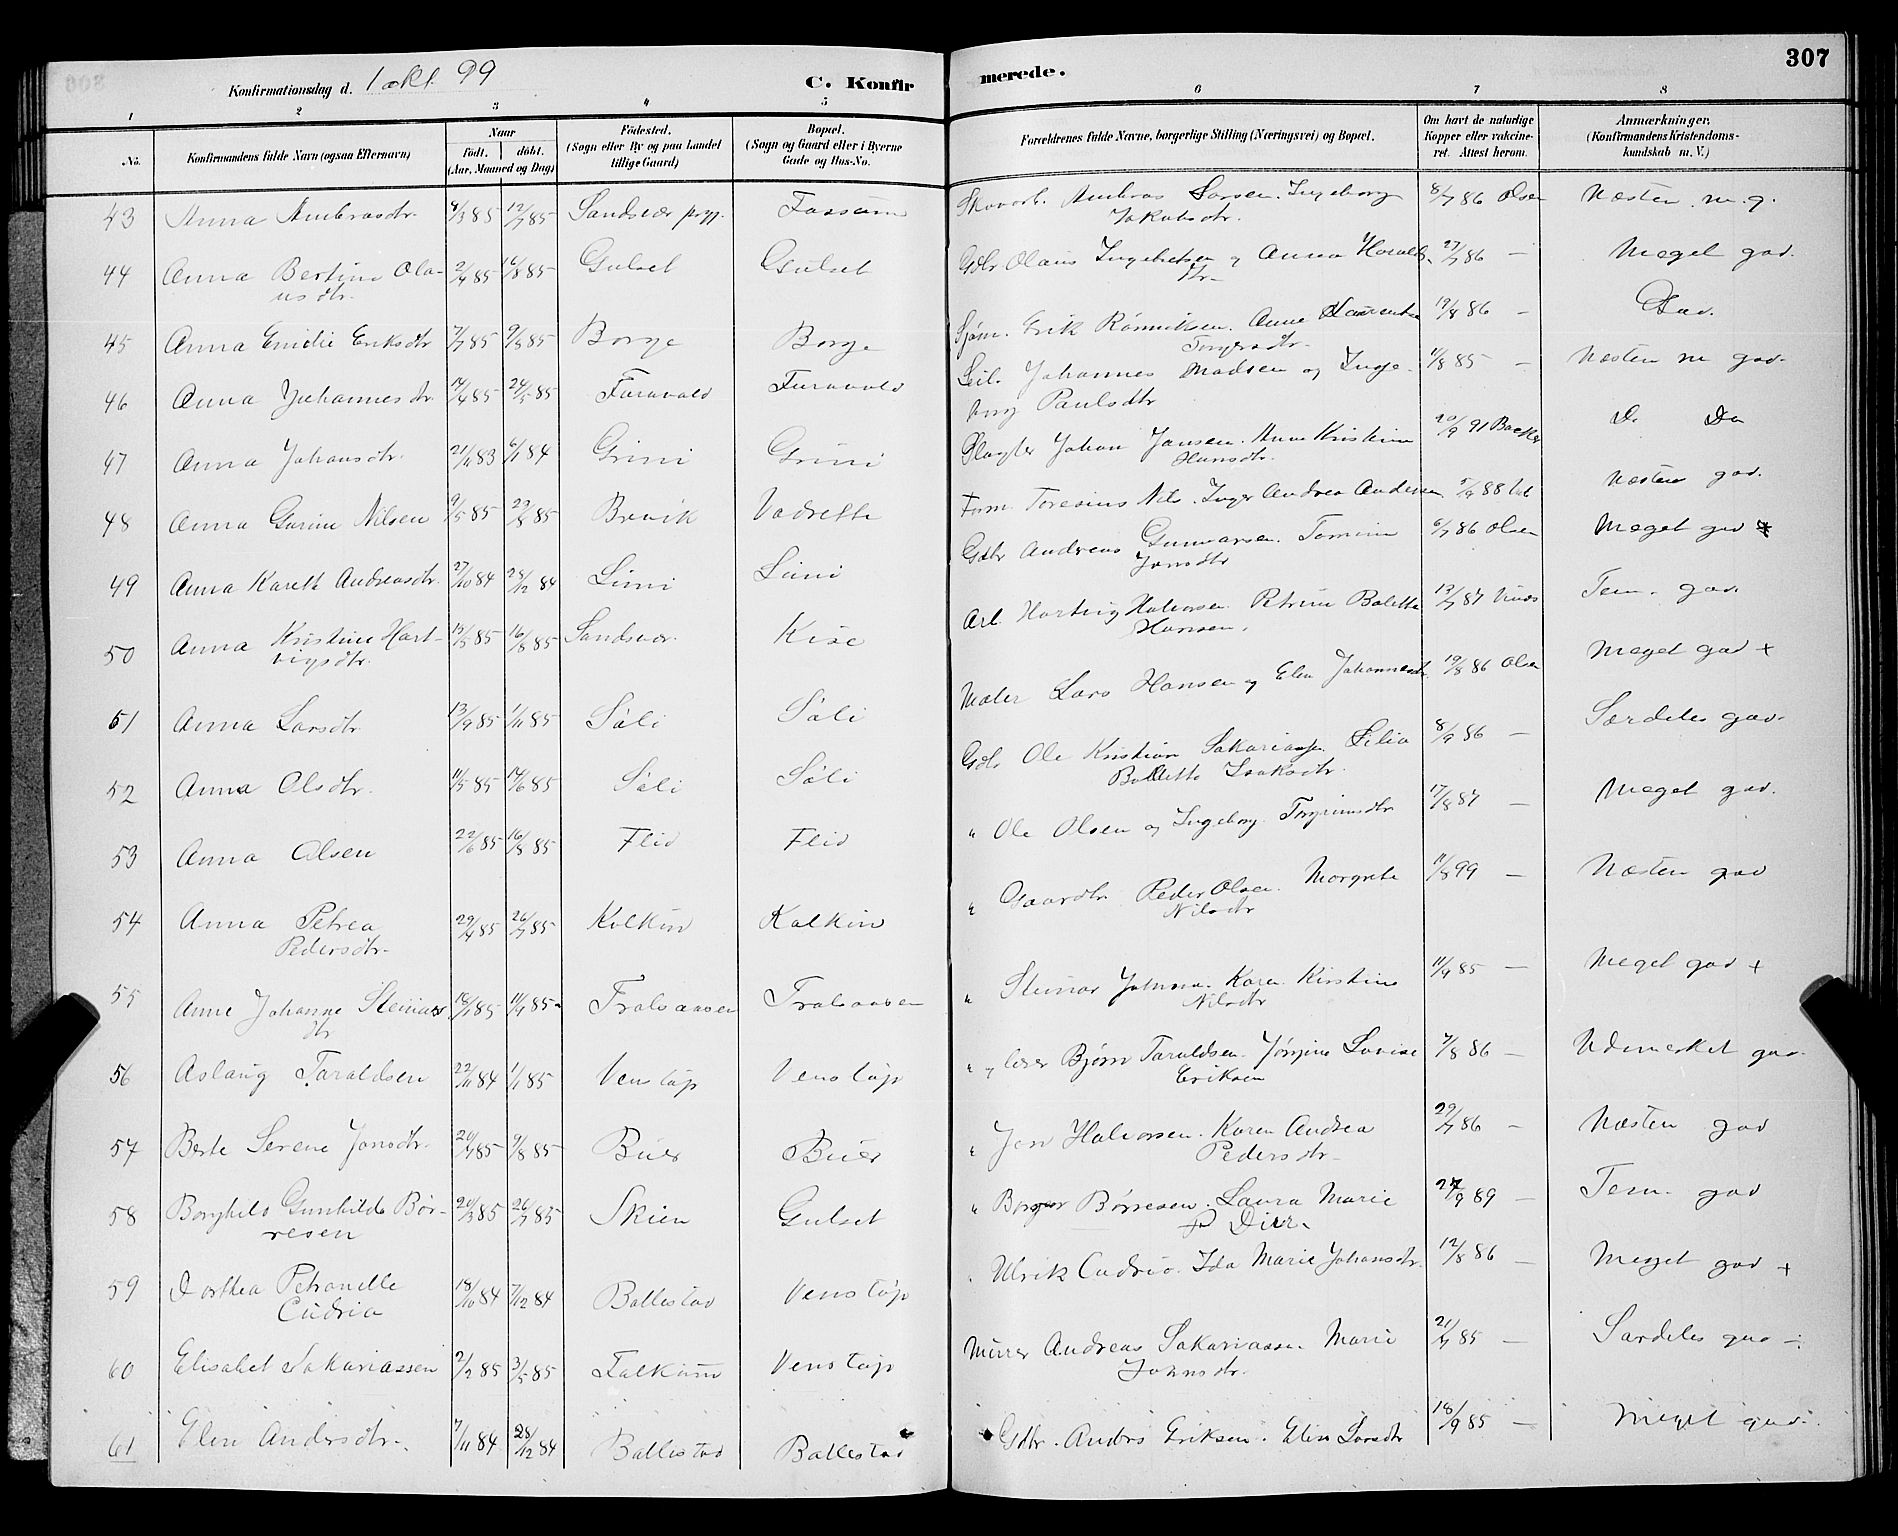 307
Konfirmationsdag d. 1 okt. 99
C. Konfirmerede.
1 2 3 4 5 6 7 8
No.
Konfirmandens fulde Navn (ogsaa Efternavn)
Naar
født. døbt.
(Aar, Maaned og Dag)
Fødested.
(Sogn eller By og paa Landet
tillige Gaard)
Bopæl.
(Sogn og Gaard eller i Byerne
Gade og Hus-No.
Forældrenes fulde Navne, borgerlige Stilling (Næringsvei) og Bopæl.
Om havt de naturlige
Kopper eller vakcine-
ret. Attest herom.
Anmærkninger,
(Konfirmandens Kristendoms-
kundskab m. V.)
43 Anna Ambrosdtr. 12/7 85 Sandsvær prgj. Fossum Ambros Larsen. Ingeborg 8/7 86 Olsen Næsten m. g.
Jakobsdtr.
44 Anna Bertine Ola- 2/4 85 16/8 85 Gulset Gulset Gdbr Olaus Ingebretsen og Anna Haralds 27/7 86 — Meget god.
usdtr. dtr.
45 Anna Emilie Eriksdtr 7/7 85 9/8 85 Borge Borge Sjøm. Erik Anne Laurentse 19/8 86 — God.
46 Anna Johannesdtr. 14/4 85 24/5 85 Furavold Furuvold Johannes Madsen og Inge- 11/8 85 — Næsten m god.
borg Paulsdtr
47 Anna Johansdtr. 21/11 83 6/1 84 Grini Grini Slagter Johan Jansen. Anne Kristine 91 Backer Do Do
Hansdtr.
48 Anna Gurine Nilsen 9/5 85 29/8 85 Brevik Vadrette Toresius Nils. Inger Andrea Andersen 88 Næsten god.
49 Anna Kareth Andreasdtr. 27/10 84 28/12 84 Limi Limi Gdbr Andreas Gunnarsen. Tomine 6/7 86 Olsen Meget god
Jonsdtr
50 Anna Kristine Hart- 15/5 85 16/8 85 Sandsvær. Kise Arb Hartvig Halvorsen. Petrine Bolette 13/7 87 Tem. god.
vigsdtr. Hansen.
51 Anna Larsdtr 13/9 85 1/11 85 Søli Søli Maler Lars Hansen og Elen Johannesdtr. 19/8 86 Olsen Meget god +
52 Anna Olsdtr. 11/5 85 14/6 85 Søli Søli Gdb Ole Kristian Sakariassen. Silia 8/9 86 — Særdeles god.
Bollette Isaksdtr.
53 Anna Olsen 22/6 85 16/8 85 Flid Flid " Ole Olsen og Ingeborg Torgrimsdtr 17/8 87 — Meget god.
54 Anna Petrea 29/4 85 26/7 85 Kolkin Kolkin " Gaardbr. Peder Olsen. Margrete 11/8 99 — Næsten god
Pedersdtr. Nilsdtr
55 Anne Johanne Steinars 85 85 Fralsaasen Fralsaasen " Steinar Johnsn. Karen Kirstine 11/9 85 — Meget god +
dtr Nilsdtr
56 Aslaug Taraldsen 22/11 84 1/1 85 Venstøp Venstøp " Bjørn Taraldsen. Jørgine Lovise 7/8 86 — Udmerket god.
Eriksen
57 Berte Serene Jonsdtr. 20/4 85 9/8 85 Buer Buer " Jon Halvorsen. Karen Andrea 29/7 86 — Næsten god
Pedersdtr
58 Borghild Gunhilda Bør- 20/3 85 26/7 85 Skien Gulset " Børresen. Laura Marie 27/9 89 — Tem. god
resen
59 Dorthea Petronelle 18/10 84 7/12 84 Bollestad Venstøp Ulrik Cudrio. Ida Marie Johansdtr. 12/8 86 — Meget god +
Cudrio
60 Elisabet Sakariassen 2/2 85 3/5 85 Falkum Venstøp Murer Andreas Sakariassen Marie 21/7 85 — Særdeles god
Johnsdtr.
61 Elen Andersdtr. 7/11 84 28/12 84 Bollestad Bollestad Gdbr. Anders Eriksen. Elen Larsdtr 18/9 85 — Meget god.